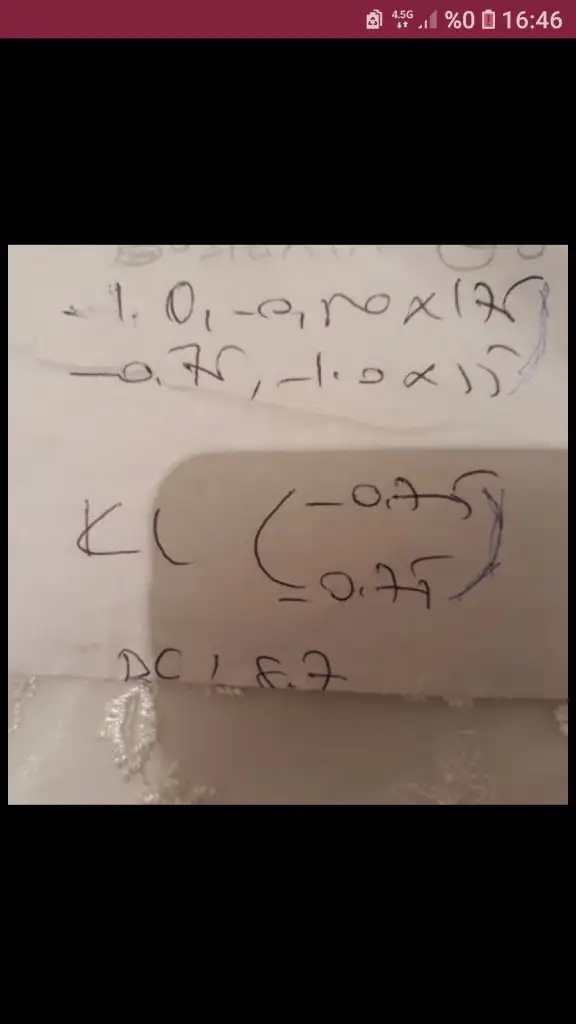 4.5G %0 16:46
-1.0, -0,50 x 175
-0.75, -1.0 x 15
KL (-0.75
-0.75)
BC, 8.7